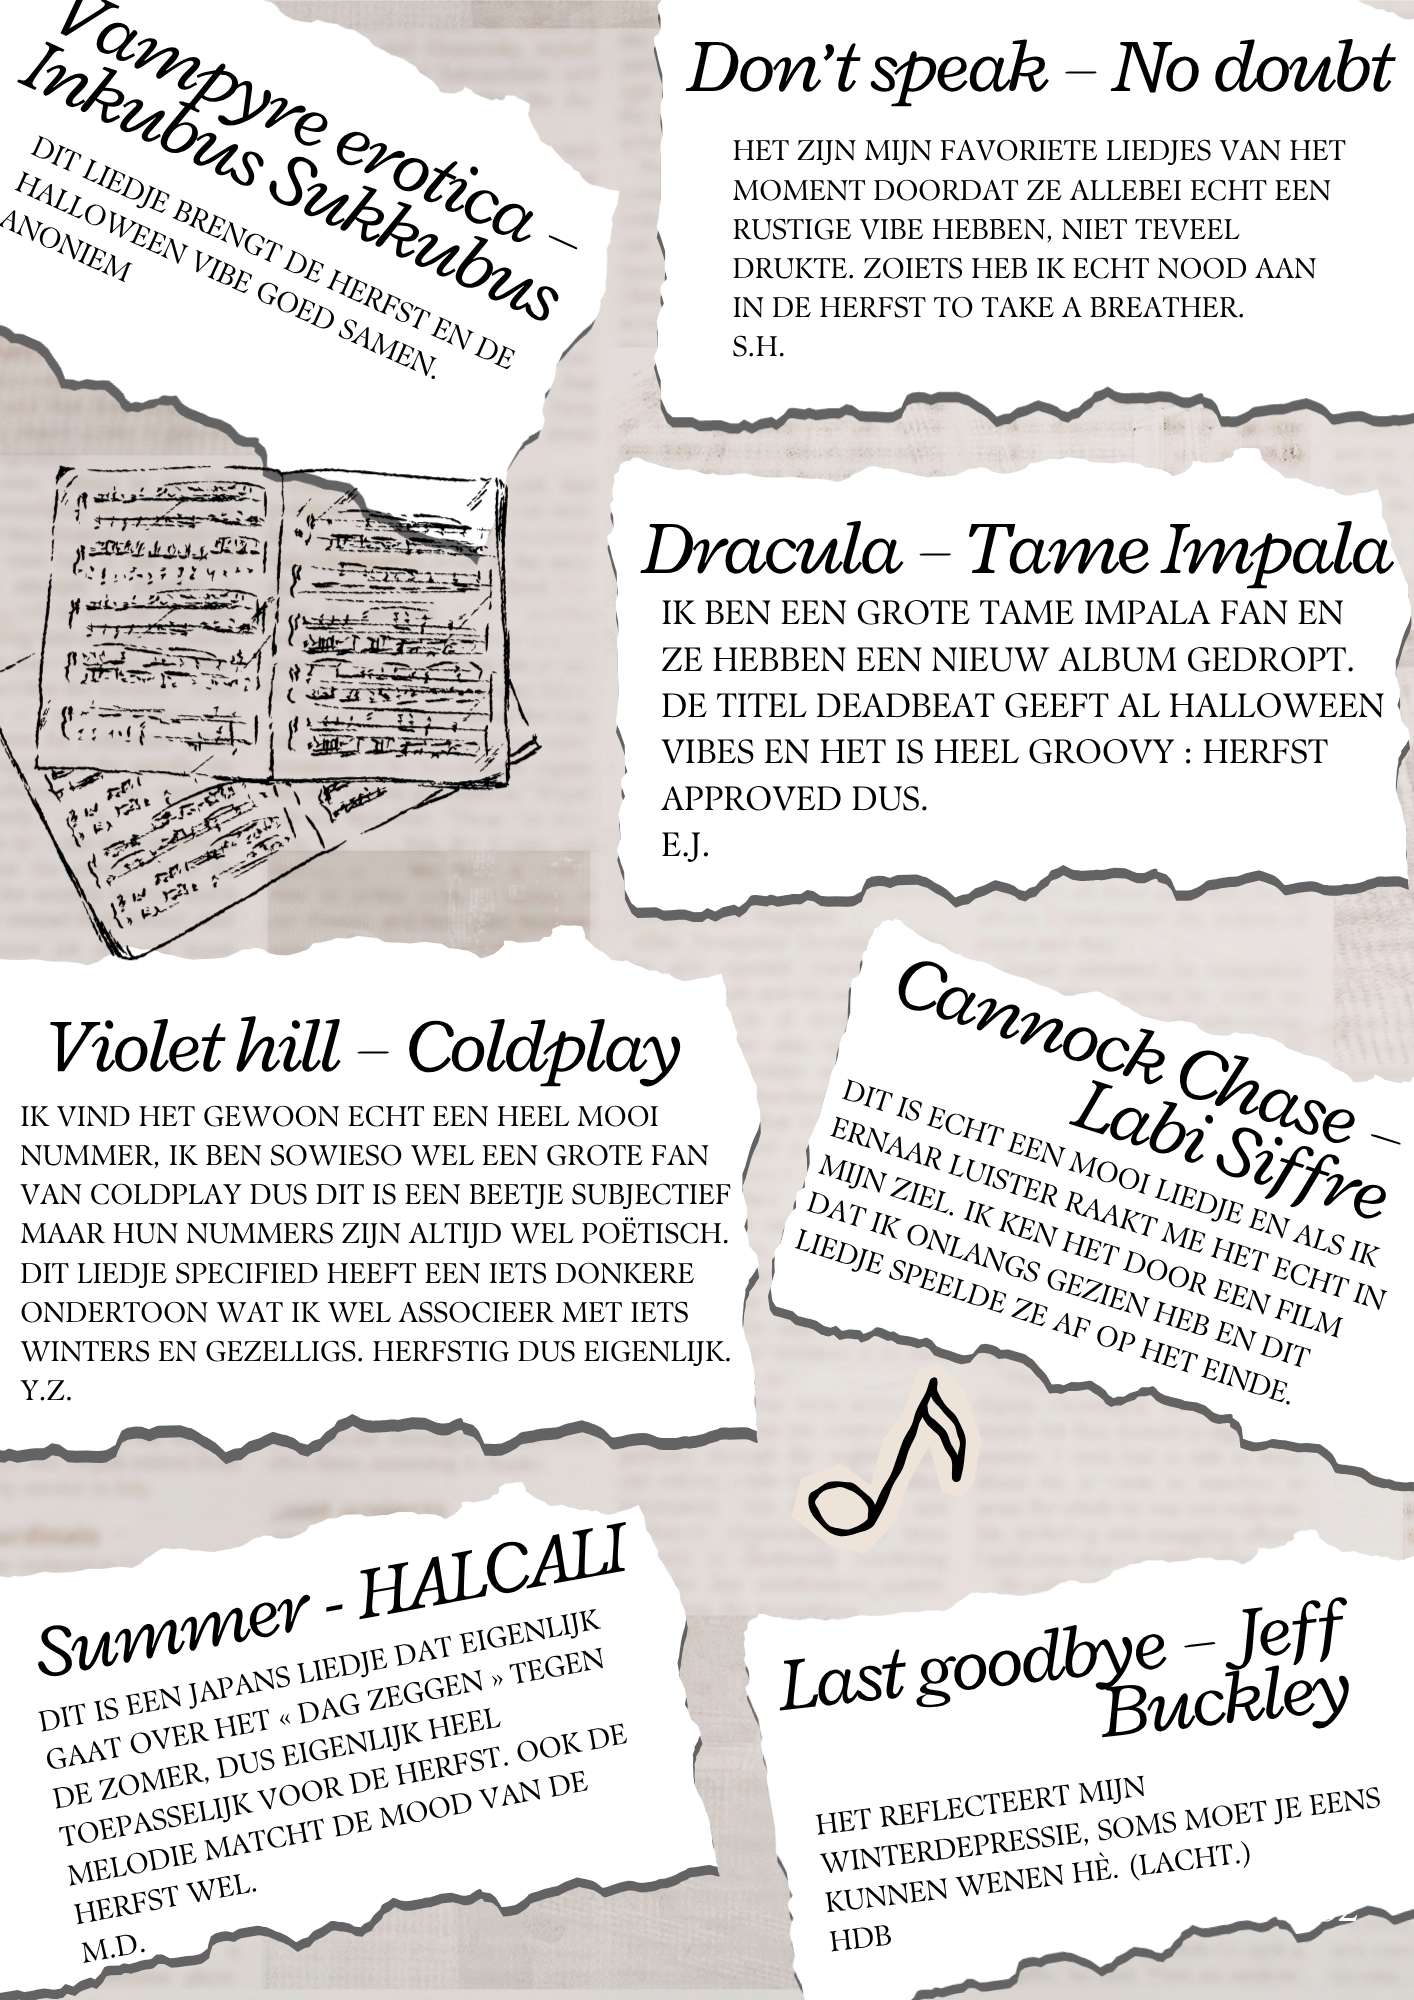 Vampyre erotica –
Inkubus Sukkubus
DIT LIEDJE BRENGT DE HERFST EN DE
HALLOWEEN VIBE GOED SAMEN.
ANONIEM
Don't speak – No doubt
HET ZIJN MIJN FAVORIETE LIEDJES VAN HET
MOMENT DOORDAT ZE ALLEBEI ECHT EEN
RUSTIGE VIBE HEBBEN, NIET TEVEEL
DRUKTE. ZOIETS HEB IK ECHT NOOD AAN
IN DE HERFST TO TAKE A BREATHER.
S.H.
Dracula – Tame Impala
IK BEN EEN GROTE TAME IMPALA FAN EN
ZE HEBBEN EEN NIEUW ALBUM GEDROPT.
DE TITEL DEADBEAT GEEFT AL HALLOWEEN
VIBES EN HET IS HEEL GROOVY : HERFST
APPROVED DUS.
E.J.
Violet hill – Coldplay
IK VIND HET GEWOON ECHT EEN HEEL MOOI
NUMMER, IK BEN SOWIESO WEL EEN GROTE FAN
VAN COLDPLAY DUS DIT IS EEN BEETJE SUBJECTIEF
MAAR HUN NUMMERS ZIJN ALTIJD WEL POËTISCH.
DIT LIEDJE SPECIFIED HEEFT EEN IETS DONKERE
ONDERTOON WAT IK WEL ASSOCIEER MET IETS
WINTERS EN GEZELLIGS. HERFSTIG DUS EIGENLIJK.
Y.Z.
Cannock Chase –
Labi Siffre
DIT IS ECHT EEN MOOI LIEDJE EN ALS IK
ERNAAR LUISTER RAAKT ME HET ECHT IN
MIJN ZIEL. IK KEN HET DOOR EEN FILM
DAT IK ONLANGS GEZIEN HEB EN DIT
LIEDJE SPEELDE ZE AF OP HET EINDE.
Summer - HALCALI
DIT IS EEN JAPANS LIEDJE DAT EIGENLIJK
GAAT OVER HET « DAG ZEGGEN » TEGEN
DE ZOMER, DUS EIGENLIJK HEEL
TOEPASSELIJK VOOR DE HERFST. OOK DE
MELODIE MATCHT DE MOOD VAN DE
HERFST WEL.
M.D.
Last goodbye – Jeff
Buckley
HET REFLECTEERT MIJN
WINTERDEPRESSIE, SOMS MOET JE EENS
KUNNEN WENEN HÈ. (LACHT.)
HDB